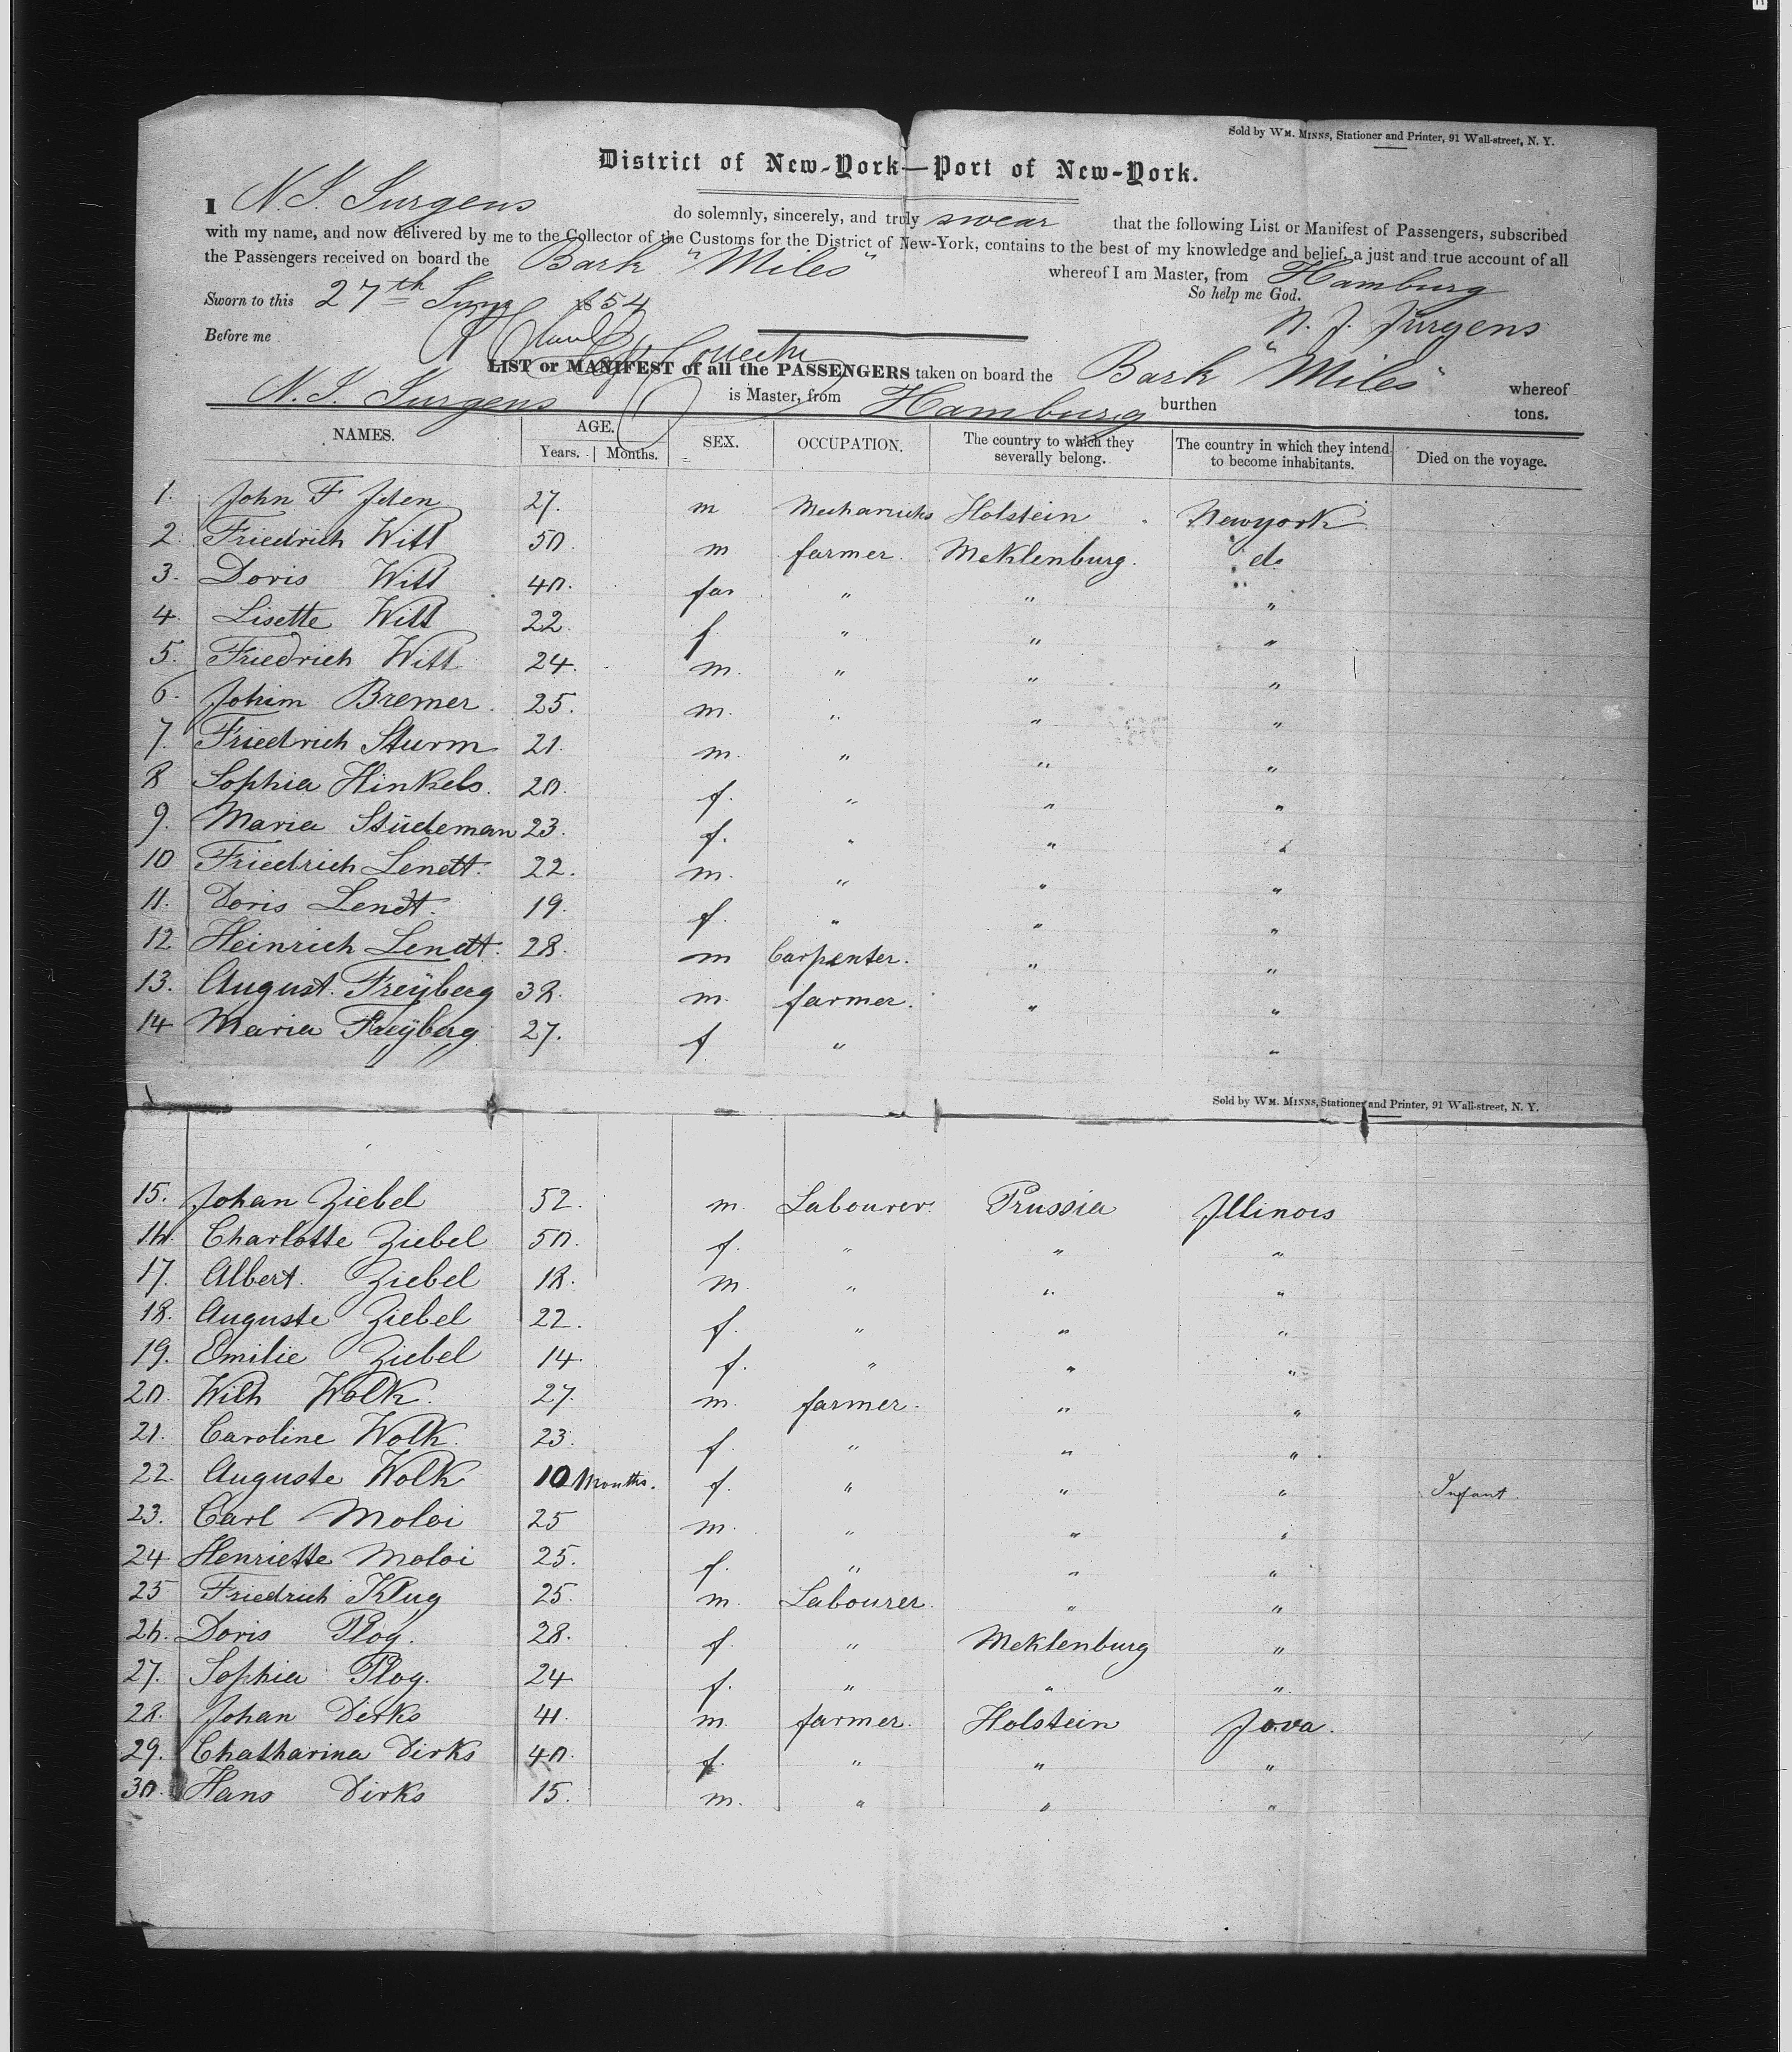 Sold by WM. MINNS, Stationer and Printer, 91 Wall-street, N. Y.
District of New-York—Port of New-York.
I N. J. Jurgens do solemnly, sincerely, and truly swear that the following List or Manifest of Passengers, subscribed
with my name, and now delivered by me to the Collector of the Customs for the District of New-York, contains to the best of my knowledge and belief, a just and true account of all
the Passengers received on board the Bark "Miles" whereof I am Master, from Hamburg
Sworn to this 27th June 1854 So help me God.
Before me N. J. Jürgens
LIST or MANIFEST of all the PASSENGERS taken on board the Bark "Miles" whereof
N. J. Jurgens is Master, from Hamburg burthen tons.
NAMES. AGE. Years. Months. SEX. OCCUPATION. The country to which they severally belong. The country in which they intend to become inhabitants. Died on the voyage.
1. John F Jden 27. m Mechanicks Holstein Newyork
2. Friedrich Witt 50. m farmer. Meklenburg. do
3. Doris Witt 40. " " "
4. Lisette Witt 22. f " " "
5. Friedrich Witt 24. m. " " "
6. Johim Bremer. 25. m. " " "
7. Friedrich Sturm 21. m. " " "
8 Sophia Hinkels. 20. f. " " "
9. Maria Stüdeman 23. f. " " "
10 Friedrich Lendt. 22. m. " " "
11. Doris Lendt. 19. f. " " "
12 Heinrich Lendt. 28. m Carpenter. " "
13. August. Freÿberg 38. m. farmer. " "
14 Maria Freÿberg 27. f " "
Sold by WM. MINNS, Stationer and Printer, 91 Wall-street, N. Y.
15. Johan Ziebel 52. m. Labourer. Prussia Jllinois
16. Charlotte Ziebel 50. f. " " "
17. Albert. Ziebel 18. m. " " "
18. Auguste Ziebel 22. f. " " "
19. Emilie Ziebel 14. f. " " "
20. Wilh Wolk. 27. m. farmer. " "
21. Caroline Wolk. 23. f. " " "
22. Auguste Wolk 10 Months. f. " " " Infant.
23. Carl Moloi 25 m. " " "
24 Henriette Moloi 25. f. " " "
25 Friedrich Klug 25. m. Labourer. " "
26. Doris Plog. 28. f. " Meklenburg "
27. Sophia Plog. 24 f. " " "
28. Johan Dirks 41. m. farmer. Holstein Jova.
29. Chatharina Dirks 40. f. " " "
30. Hans Dirks 15. m. " " "